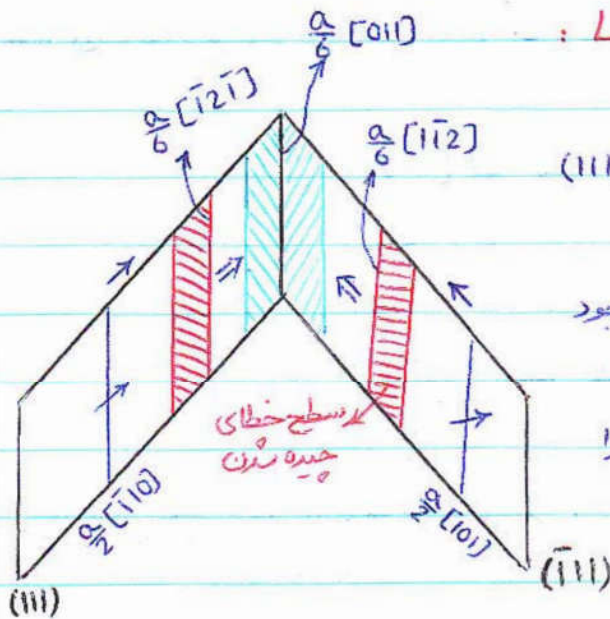 : L
a/6 [011]
a/6 [1̄21̄]
a/6 [11̄2]
(111
جود
را
سطح خطای
چیده شدن
a/2 [1̄10]
a/2 [101]
(111)
(1̄11)